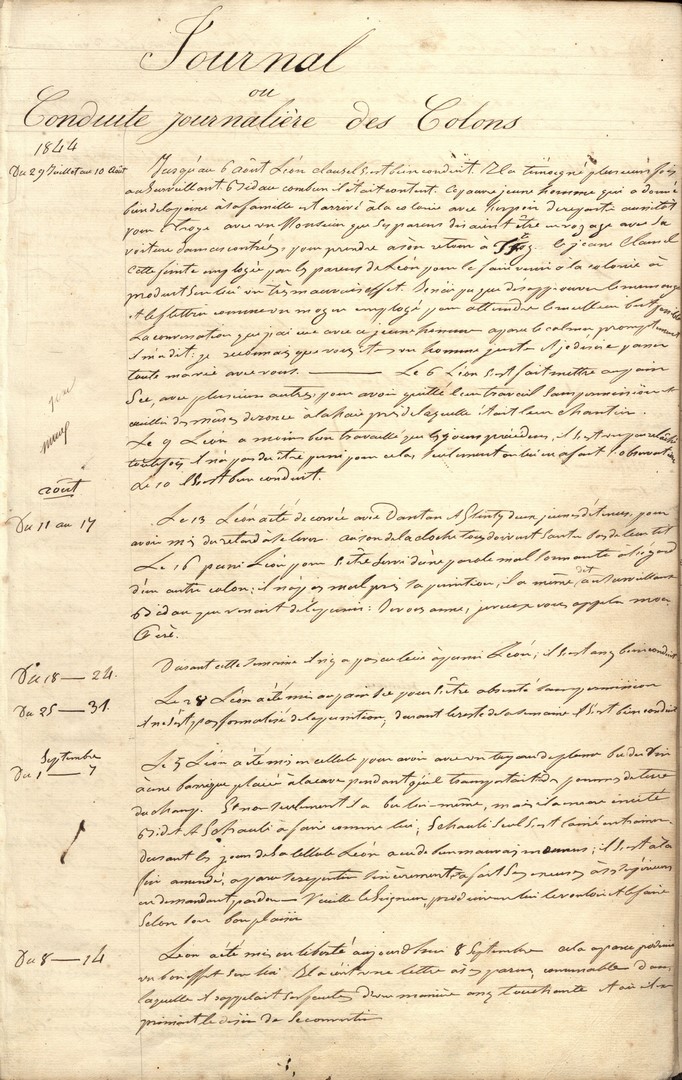 Journal
ou
Conduite journalière des Colons
1844
Du 29 Juillet au 10 Août
Jusqu'au 6 août Léon Clausel s'est bien conduit. Il a témoigné plusieurs fois
au Surveillant combien il était content. Ce jeune homme qui a donné
bien de la peine à sa famille est arrivé à la colonie avec
pour avec un Monsieur que ses parens disaient être en voyage avec sa
voiture dans ces contrées, pour prendre à son retour à le jeune Clausel
Cette feinte employée par les parens de Léon pour le faire venir à la colonie a
produit sur lui un très mauvais effet. désapprouver le mensonge
et le flétrir comme un moyen employé pour atteindre le meilleur but possible
La conversation que j'ai eue avec ce jeune homme a paru le calmer promptement
Il m'a dit: je reconnais que vous êtes un homme juste et je désire passer
toute ma vie avec vous. Le 6 Léon s'est fait mettre au pain
Sec, avec plusieurs autres, pour avoir quitté leur travail sans permission et
cueilli des mûres de ronce à la haie près de laquelle était leur chantier.
Le 9 Léon a moins bien travaillé que les jours précédens, il s'est un peu relâché
toutefois il n'a pas dû être puni pour cela, seulement on lui en a fait l'observation
Le 10 il s'est bien conduit.
août
Du 11 au 17
Le 13 Léon a été de corvée avec Dantan et deux jeunes détenus, pour
avoir mis du retard à se lever. au son de la cloche tous doivent sauter à bas de leur lit
Le 16 puni Léon pour s'être servi d'une parole mal sonnante à l'égard
d'un autre colon; il n'a pas mal pris sa punition, il a même dit au Surveillant
qui venait de le punir: Je vous aime, je veux vous appeler mon
Père.
Du 18 — 24.
Durant cette semaine il n'y a pas eu lieu à punir Léon; il s'est assez bien conduit
Du 25 — 31.
Le 28 Léon a été mis au pain sec pour s'être absenté sans permission
Il ne s'est pas formalisé de la punition, durant le reste de la semaine il s'est bien conduit
Septembre
Du 1 — 7
Le 5 Léon a été mis en cellule pour avoir avec un tuyau de plume bu du vin
à une barrique placée à la cave pendant qu'il transportait des pommes de terre
du champ. Et non seulement il a bu lui-même, mais il a encore invité
Schauli à faire comme lui, Schauli seul s'est laissé entraîner.
durant les jours de la cellule Léon a eu de bien mauvais momens; il s'est à la
fin amendé, a paru se repentir sincèrement, a fait ses excuses à ses supérieurs
en demandant pardon — Veuille le Seigneur produire en lui le vouloir et le faire
Selon Son bon plaisir
Du 8 — 14
Léon a été mis en liberté aujourd'hui 8 Septembre cela a paru produire
un bon effet sur lui. Il a écrit une lettre à ses parens, convenable dans
laquelle il rappelait ses fautes d'une manière assez touchante et où il ex
primait le désir de se convertir